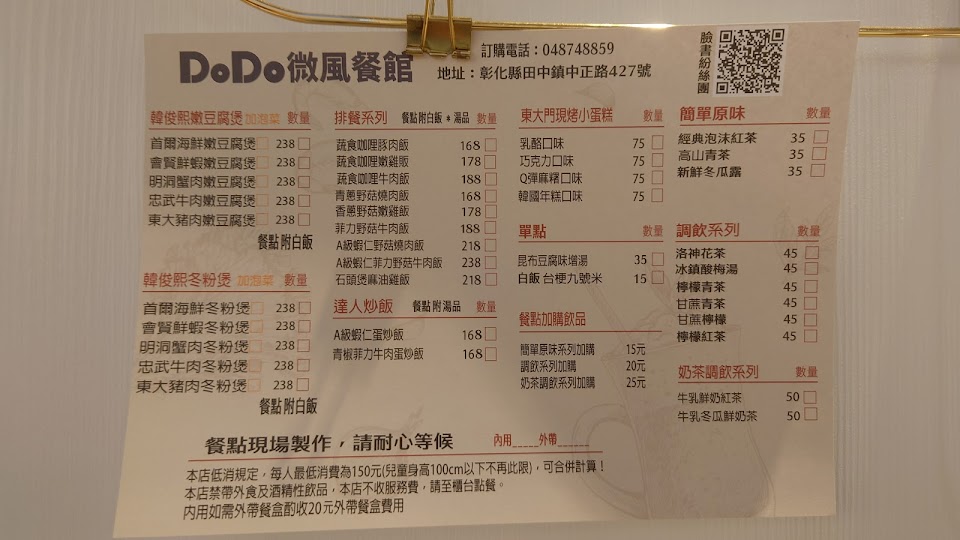 DoDo微風餐館
訂購電話：048748859
地址：彰化縣田中鎮中正路427號
臉書粉絲團
韓俊熙嫩豆腐煲 加泡菜 數量
首爾海鮮嫩豆腐煲 238
會賢鮮蝦嫩豆腐煲 238
明洞蟹肉嫩豆腐煲 238
忠武牛肉嫩豆腐煲 238
東大豬肉嫩豆腐煲 238
餐點附白飯
韓俊熙冬粉煲 加泡菜 數量
首爾海鮮冬粉煲 238
會賢鮮蝦冬粉煲 238
明洞蟹肉冬粉煲 238
忠武牛肉冬粉煲 238
東大豬肉冬粉煲 238
餐點附白飯
排餐系列 餐點附白飯＊湯品 數量
蔬食咖哩豚肉飯 168
蔬食咖哩嫩雞飯 178
蔬食咖哩牛肉飯 188
青蔥野菇燒肉飯 168
香蔥野菇嫩雞飯 178
菲力野菇牛肉飯 188
A級蝦仁野菇燒肉飯 218
A級蝦仁菲力野菇牛肉飯 238
石頭煲麻油雞飯 218
達人炒飯 餐點附湯品 數量
A級蝦仁蛋炒飯 168
青椒菲力牛肉蛋炒飯 168
東大門現烤小蛋糕 數量
乳酪口味 75
巧克力口味 75
Q彈麻糬口味 75
韓國年糕口味 75
單點 數量
昆布豆腐味增湯 35
白飯 台梗九號米 15
餐點加購飲品
簡單原味系列加購 15元
調飲系列加購 20元
奶茶調飲系列加購 25元
簡單原味 數量
經典泡沫紅茶 35
高山青茶 35
新鮮冬瓜露 35
調飲系列 數量
洛神花茶 45
冰鎮酸梅湯 45
檸檬青茶 45
甘蔗青茶 45
甘蔗檸檬 45
檸檬紅茶 45
奶茶調飲系列 數量
牛乳鮮奶紅茶 50
牛乳冬瓜鮮奶茶 50
餐點現場製作，請耐心等候 內用____外帶_____
本店低消規定，每人最低消費為150元(兒童身高100cm以下不再此限)，可合併計算！
本店禁帶外食及酒精性飲品，本店不收服務費，請至櫃台點餐。
內用如需外帶餐盒酌收20元外帶餐盒費用